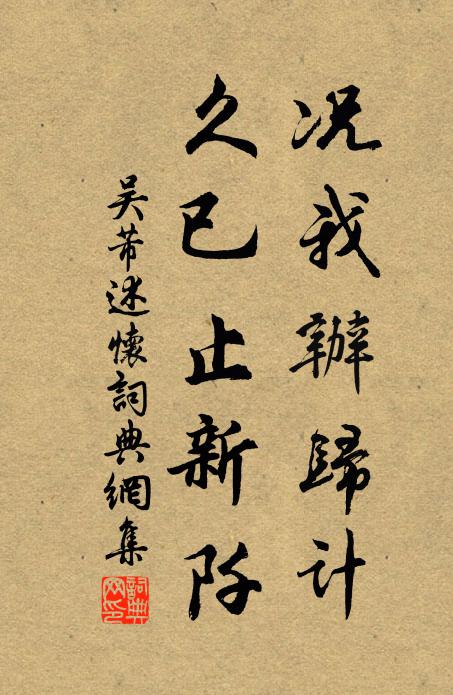 况我辦歸計
久已止新阡
吴芾述懷詞典網集
詞典网印